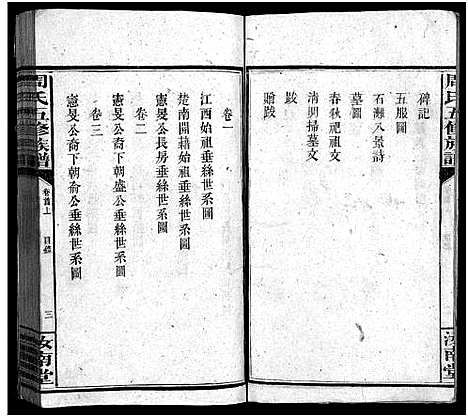 周氏五修族譜
碑記
五服圖
石灘八景詩
墓圖
春秋祀祖文
清明掃墓文
跋
贈跋
汝南堂
卷一
江西始祖垂絲世系圖
楚南開籍始祖垂絲世系圖
憲旻公長房垂絲世系圖
卷二
憲旻公裔下朝盛公垂絲世系圖
卷三
憲旻公裔下朝裔公垂絲世系圖
周氏五修族譜
卷首上
目錄
三
汝南堂